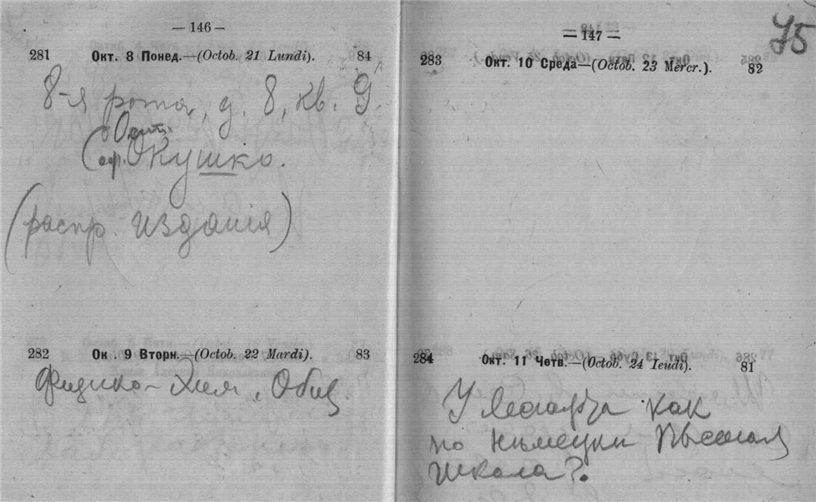 — 146 —
281 Окт. 8 Понед.—(Octob. 21 Lundi). 84
8-я рота, д. 8, кв. 9.
Окушко.
(распр. изданія)
282 Ок . 9 Вторн.—(Octob. 22 Mardi). 83
Физико-Хим. Общ.
— 147 —
75
283 Окт. 10 Среда—(Octob. 23 Mercr.). 82
284 Окт. 11 Четв.—(Octob. 24 Ieudi). 81
У как
по нѣмецки
школа?